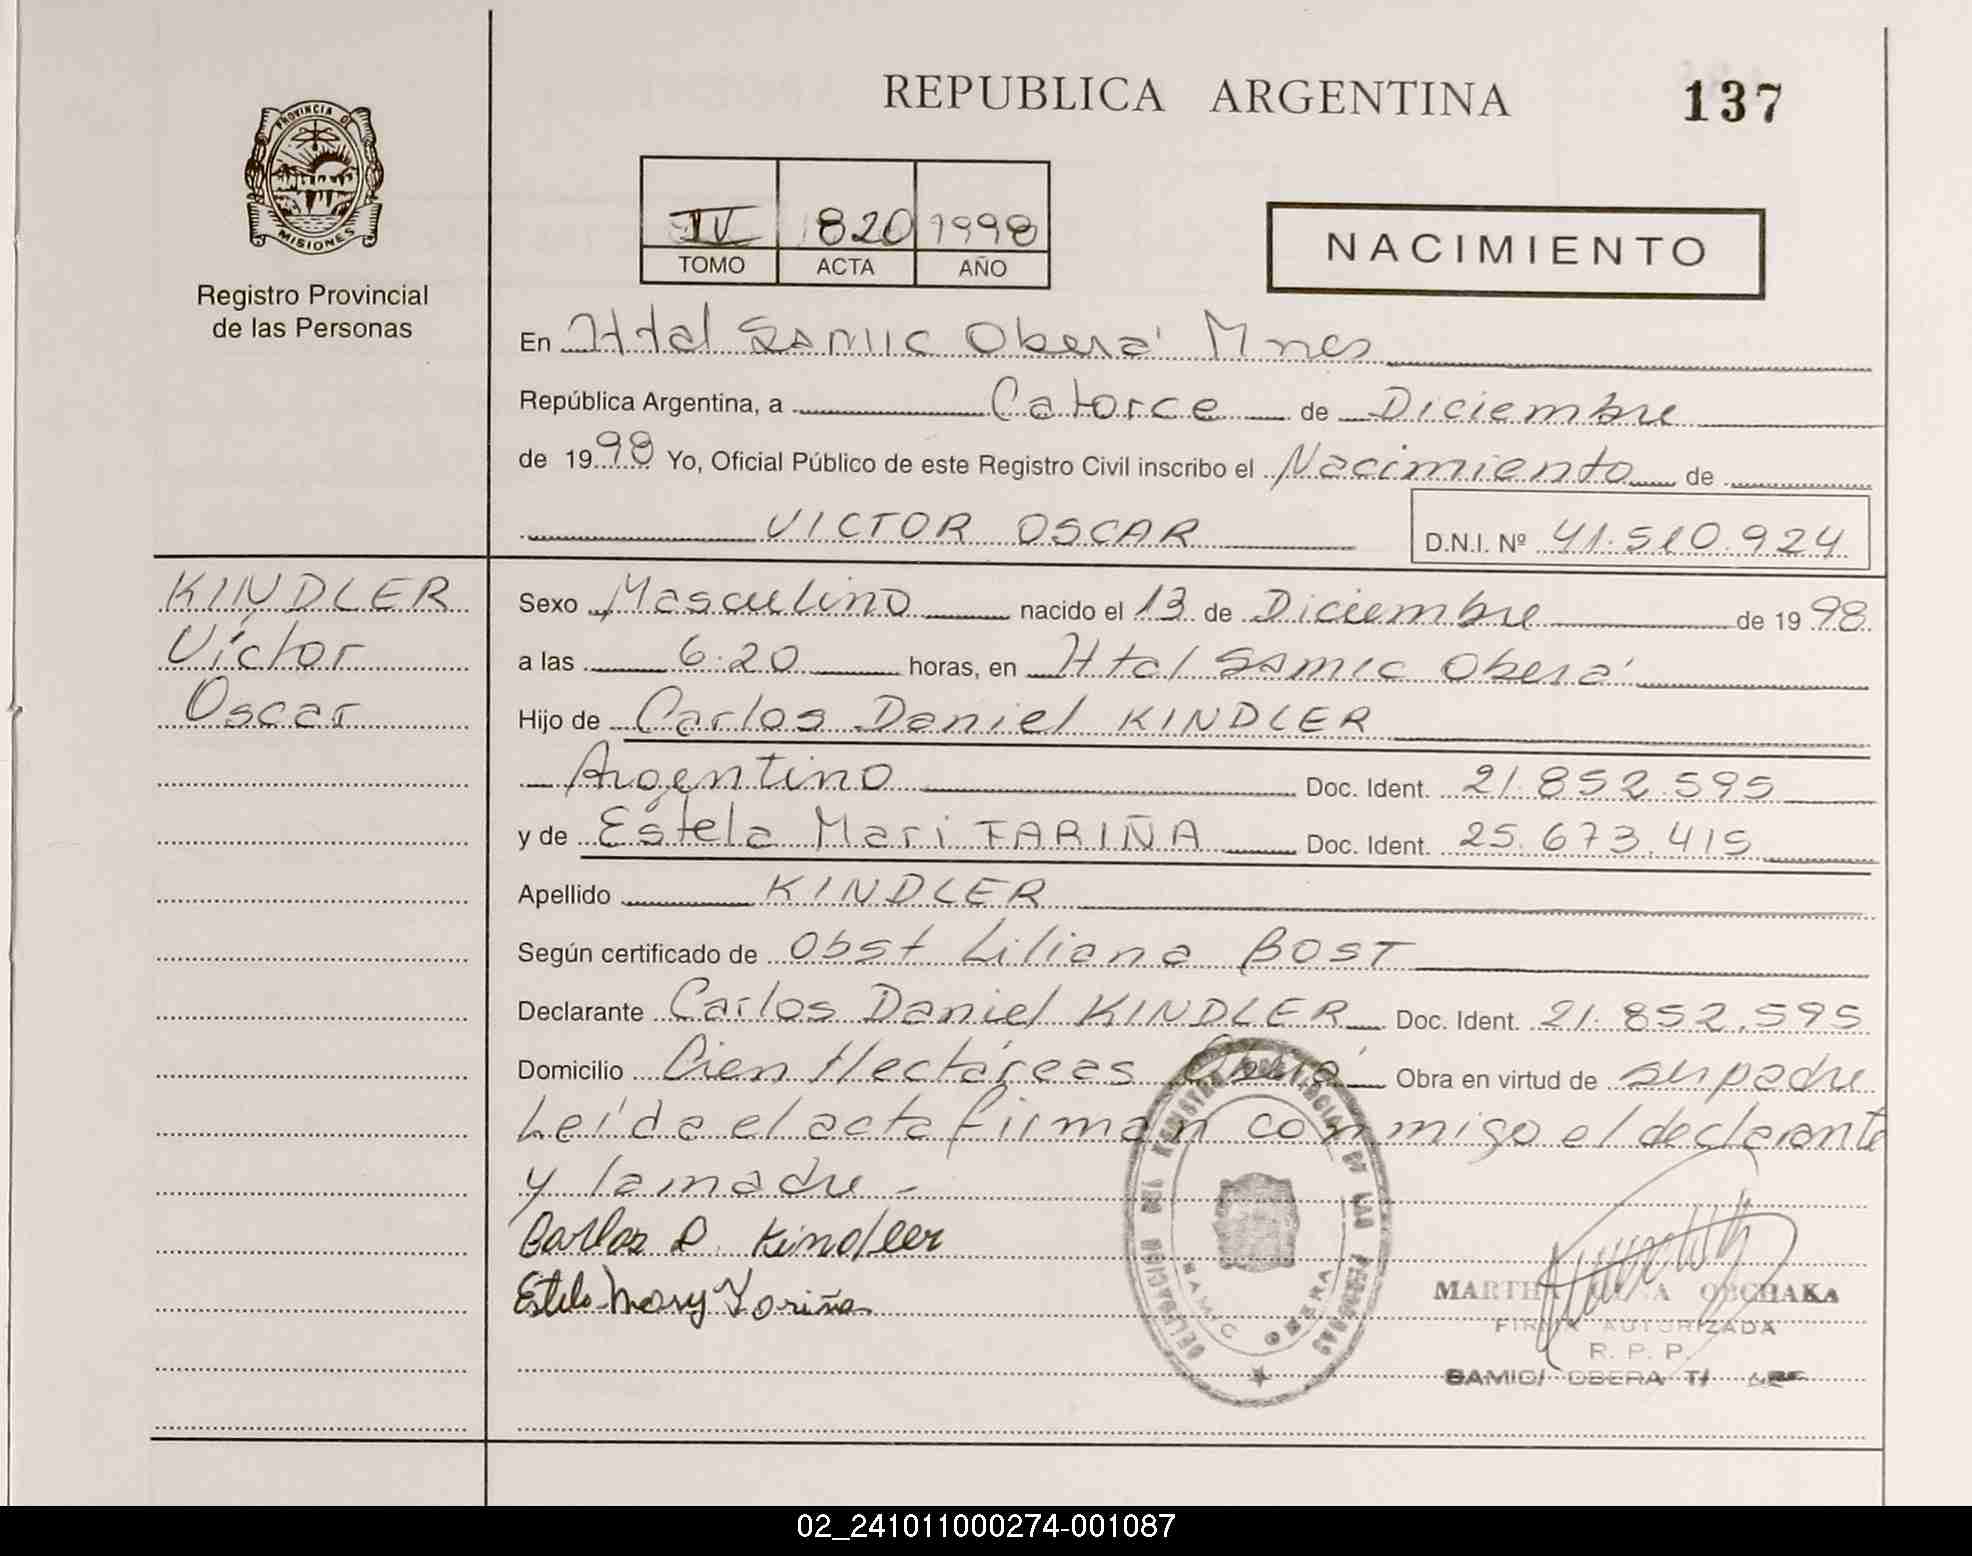 REPUBLICA ARGENTINA
137
PROVINCIA DE
MISIONES
Registro Provincial
de las Personas
IV 820 1998
TOMO ACTA AÑO
NACIMIENTO
En Htal SAMIC Oberá Mnes
República Argentina, a Catorce de Diciembre
de 1998 Yo, Oficial Público de este Registro Civil inscribo el Nacimiento de
VICTOR OSCAR D.N.I. Nº 41.510.924
KINDLER
Víctor
Oscar
Sexo Masculino nacido el 13 de Diciembre de 1998
a las 6.20 horas, en Htal SAMIC Oberá
Hijo de Carlos Daniel KINDLER
Argentino Doc. Ident. 21.852.595
y de Estela Mari FARIÑA Doc. Ident. 25.673.415
Apellido KINDLER
Según certificado de Obst Liliana BOST
Declarante Carlos Daniel KINDLER Doc. Ident. 21.852.595
Domicilio Cien Hectáreas Oberá Obra en virtud de su padre
Leída el acta firman conmigo el declarante
y la madre -
Carlos D. Kindler
Estela Mary Fariña
DELEGACION DEL REGISTRO PROVINCIAL DE LAS PERSONAS
SAMIC OBERA
MARTHA OBCHAKA
FIRMA AUTORIZADA
R. P. P.
SAMIC/ OBERA T/
02_241011000274-001087